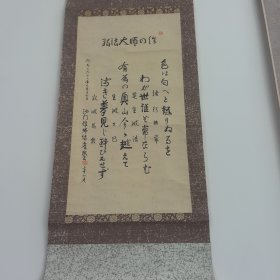 弘法大師の作
色は匂へと散りぬるを
諸行無常
わが世誰ぞ常ならむ
是生滅法
有為の奥山今日越えて
生滅々已
浅き夢見し酔ひもせず
寂滅為楽